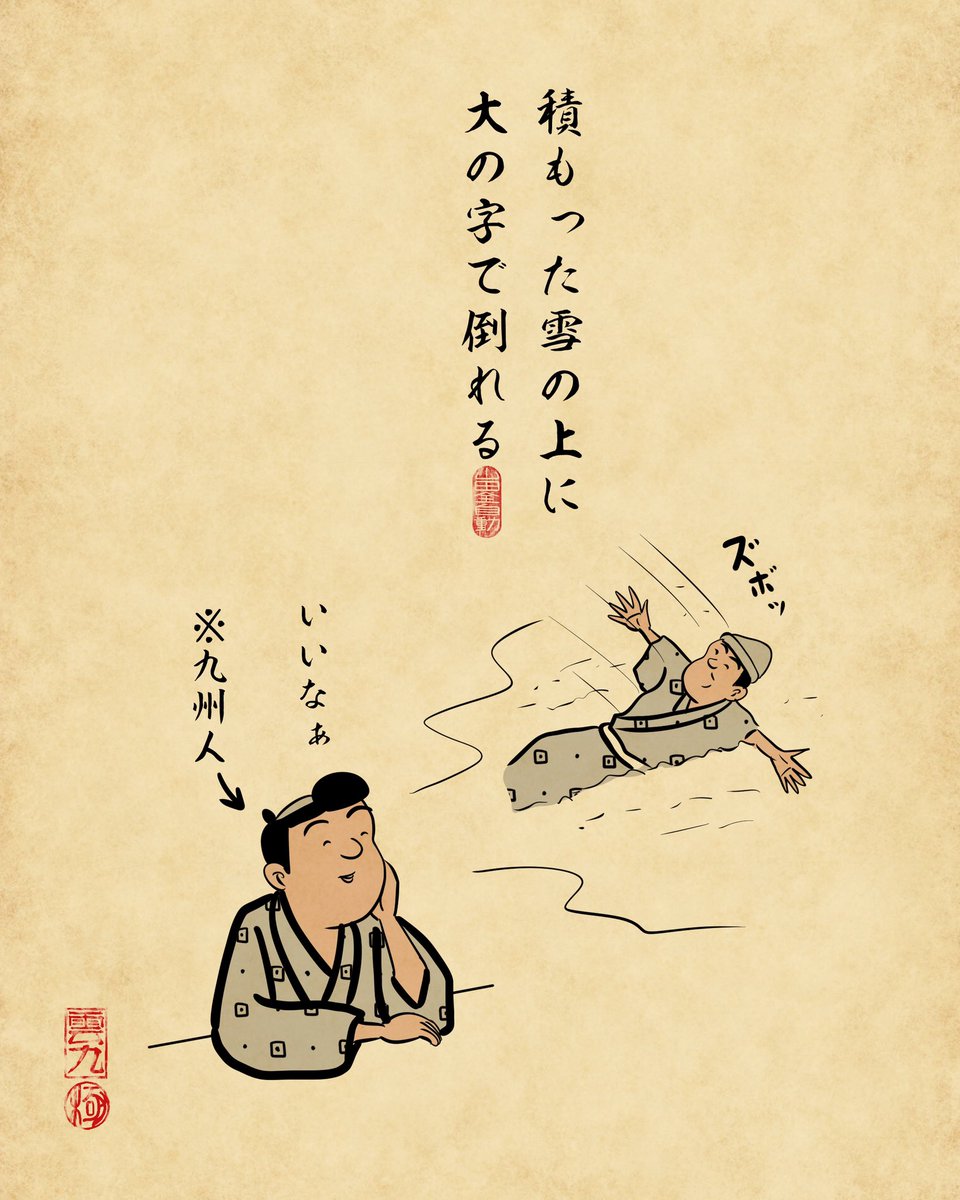 積もった雪の上に
大の字で倒れる
ズボッ
いいなぁ
※九州人